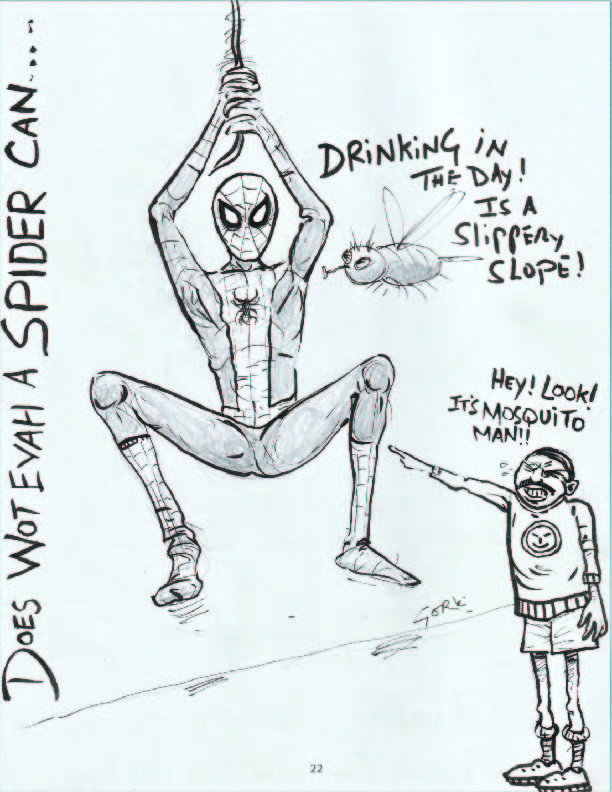 DOES WOT EVAH A SPIDER CAN....
DRINKING IN
THE DAY!
IS A
SLIPPERY
SLOPE!
HEY! LOOK!
IT'S MOSQUITO
MAN!!
GORK
22